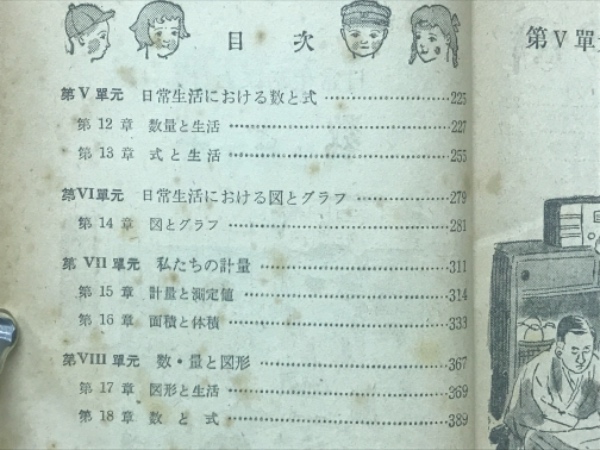 目 次
第V單元 日常生活における数と式 225
第12章 数量と生活 227
第13章 式と生活 255
第VI單元 日常生活における図とグラフ 279
第14章 図とグラフ 281
第VII單元 私たちの計量 311
第15章 計量と測定値 314
第16章 面積と体積 333
第VIII單元 数・量と図形 367
第17章 図形と生活 369
第18章 数と式 389
第V單